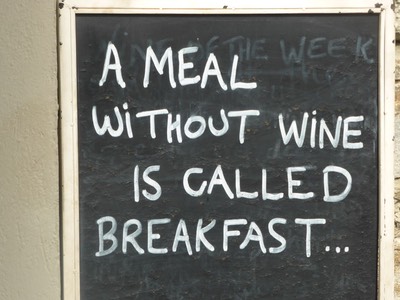 WINE OF THE WEEK
A MEAL
WITHOUT WINE
IS CALLED
BREAKFAST...